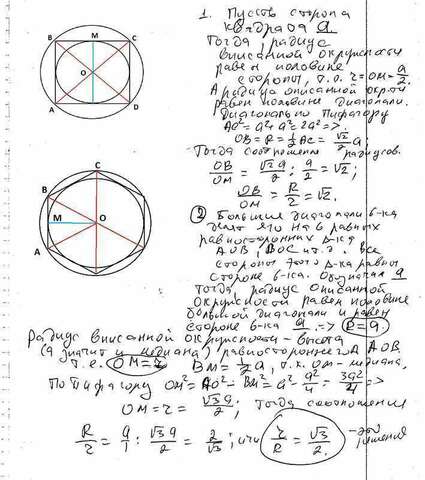 B M C
O
A D
C
B
M O
A
1. Пусть сторона
квадрата a.
Тогда, радиус
вписанной окружности
равен половине
стороны, т.е. r=OM=a/2.
А радиус описанной окр-ти
равен половине диагонали.
Диагональ по Пифагору
AC²=a²+a²=2a² =>
OB=R=1/2 AC=√2/2 a;
Тогда соотношение радиусов.
OB/OM = √2a/2 : a/2 = √2;
OB/OM = R/2 = √2.
② Большие диагонали 6-ка
делят его на 6 равных
равносторонних Δ-ка
AOB, BOC и т.д. Все
стороны этого Δ-ка равны
стороне 6-ка. Обозначил a
Тогда, радиус описанной
окружности равен половине
большой диагонали и равен
стороне 6-ка a. => R=a.
Радиус вписанной окружности - высота
(а значит и медиана) равностороннего Δ AOB.
т.е. OM=r BM=1/2 a, т.к. OM-медиана.
По Пифагору OM²=AO²-BM²=a²-a²/4=3a²/4 =>
OM=r=√3a/2; тогда соотношения
R/r = a/1 : √3a/2 = 2/√3; или r/R = √3/2. - это
решения